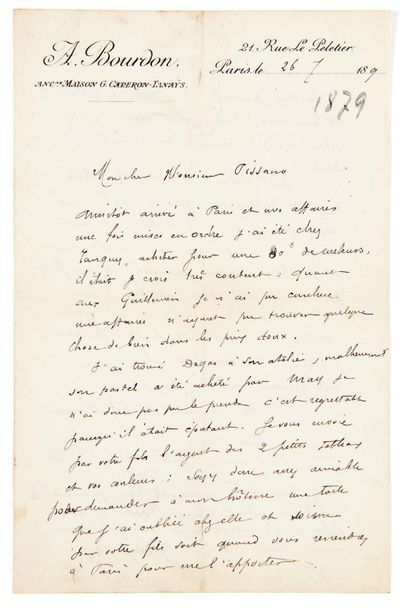 A. Bourdon.
ANC.ne MAISON G. CAPERON-TANAŸS.
21. Rue Le Peletier.
Paris, le 26 7 189
1879
Mon cher Monsieur Pissaro
arrivé à Paris et mes affaires
une fois mises en ordre j'ai été chez
Tanguy acheter pour une 30e de couleurs,
il était je crois très content ; Quant
aux Guillaumin je n'ai pu conclure
une affaire n'ayant pu trouver quelque
chose de bien dans les prix doux.
J'ai trouvé Degas à son atelier, malheureust
son pastel a été acheté par May je
n'ai donc pas pu le prendre c'est regrettable
parcequ'il était épatant. Je vous envoie
par votre fils l'argent des 2 petits tableaux
et vos couleurs ; Soyez donc assez aimable
pour demander à mon hôtesse une toile
que j'ai oubliée chez elle et
par votre fils soit quand vous reviendrez
à Paris pour me l'apporter